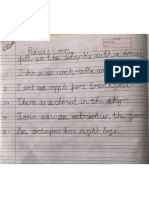 Revision
fill in the blanks with a or an
I eat an apple for breakfast
There is a cloud in the sky.
John saw an ostrich in the zoo
An octopus has eight legs.